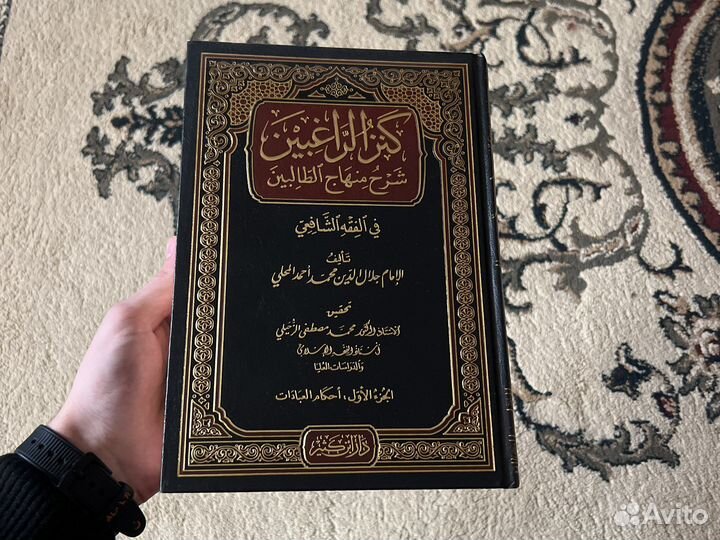 كنز الرَّاغبين
شرح منهاج الطالبين
في الفقه الشافعي
تأليف
الإمام جلال الدين محمد أحمد المحلي
تحقيق
الأستاذ الدكتور محمد مصطفى الزحيلي
أستاذ الفقه الإسلامي
والدراسات العليا
الجزء الأول، أحكام العبادات
دار ابن كثير
Avito